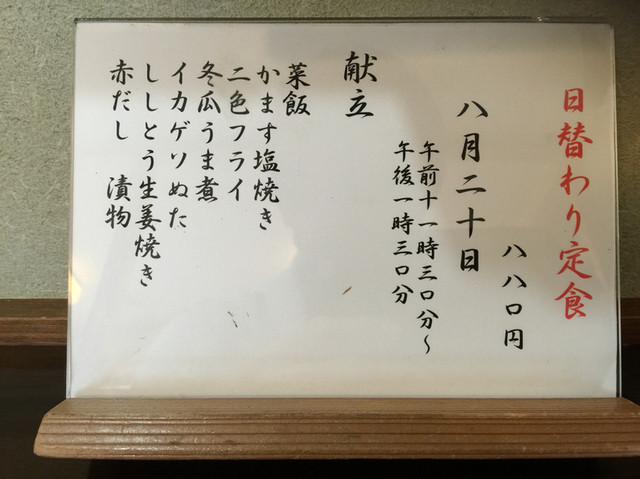 日替わり定食
八八〇円
八月二十日
午前十一時三〇分〜
午後一時三〇分
献立
菜飯
かます塩焼き
二色フライ
冬瓜うま煮
イカゲソぬた
ししとう生姜焼き
赤だし 漬物